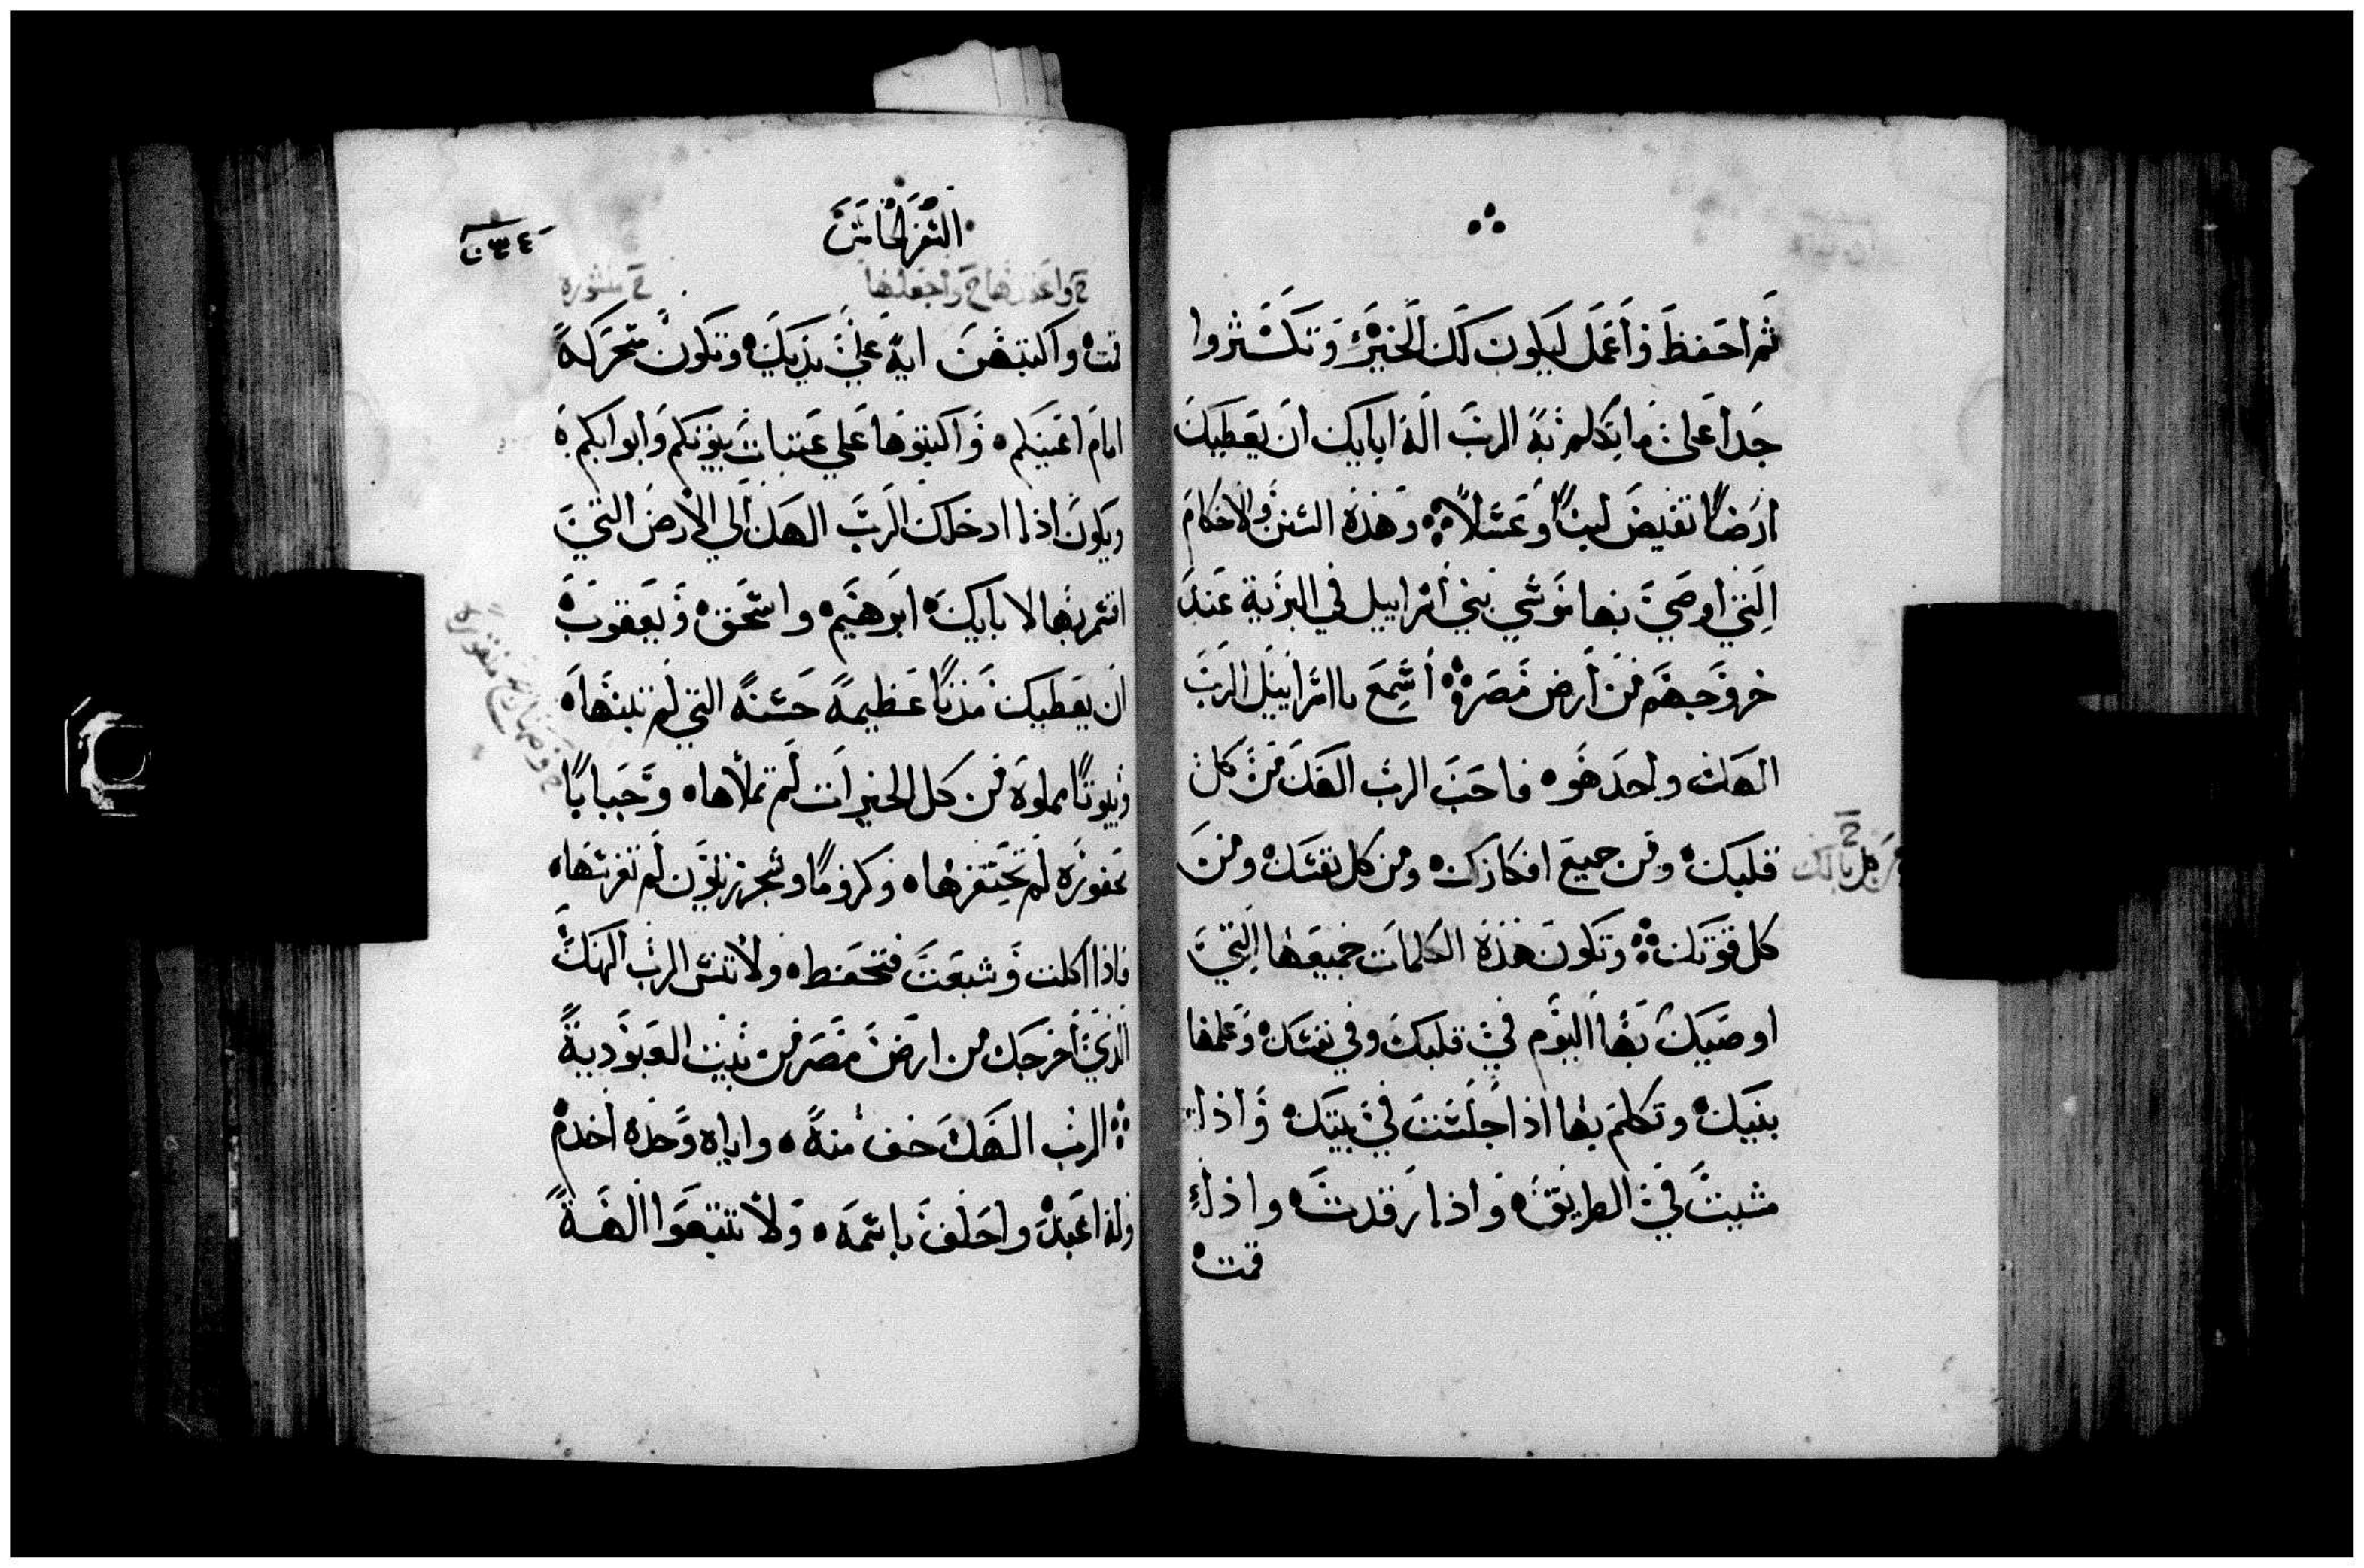 ثم احفظ واعمل ليكون لك الخير وتكثروا
جدا على ما تكلم به الرب اله ابايك ان يعطيك
ارضا تفيض لبنا وعسلا وهذه السنن والاحكام
التي اوصي بها موسي بني اسراييل في البرية عند
خروجهم من ارض مصر اسمع يا اسراييل الرب
الهك واحد هو فاحب الرب الهك من كل
قلبك ومن جميع افكارك ومن كل نفسك ومن
من كل بالك
كل قوتك وتكون هذه الكلمات جميعها التي
اوصيك بها اليوم في قلبك وفي نفسك وعلمها
بنيك وتكلم بها اذا جلست في بيتك واذا
مشيت في الطريق واذا رقدت واذا
قمت
السفر الخامس
٢٣٤
واجعلها
منثوره
قمت واكتبهن ايه علي يديك وتكون متحركة
امام اعينكم واكتبوها علي عتبات بيوتكم وابوابكم
ويكون اذا ادخلك الرب الهك الي الارض التي
اقسم بها لابايك ابرهيم واسحق ويعقوب
ان يعطيك مدنا عظيمة حسنة التي لم تبنها
وبيوتا مملوه من كل الخير انت لم تملاها وجبابا
منقوره
محفوره لم تحتفرها وكروما وشجر زيتون لم تغرسها
فاذا اكلت وشبعت فتحفظ ولا تنس الرب الهك
الذي اخرجك من ارض مصر من بيت العبودية
الرب الهك خف منه واياه وحده اخدم
وله اعبد واحلف باسمه ولا تتبعوا الهة